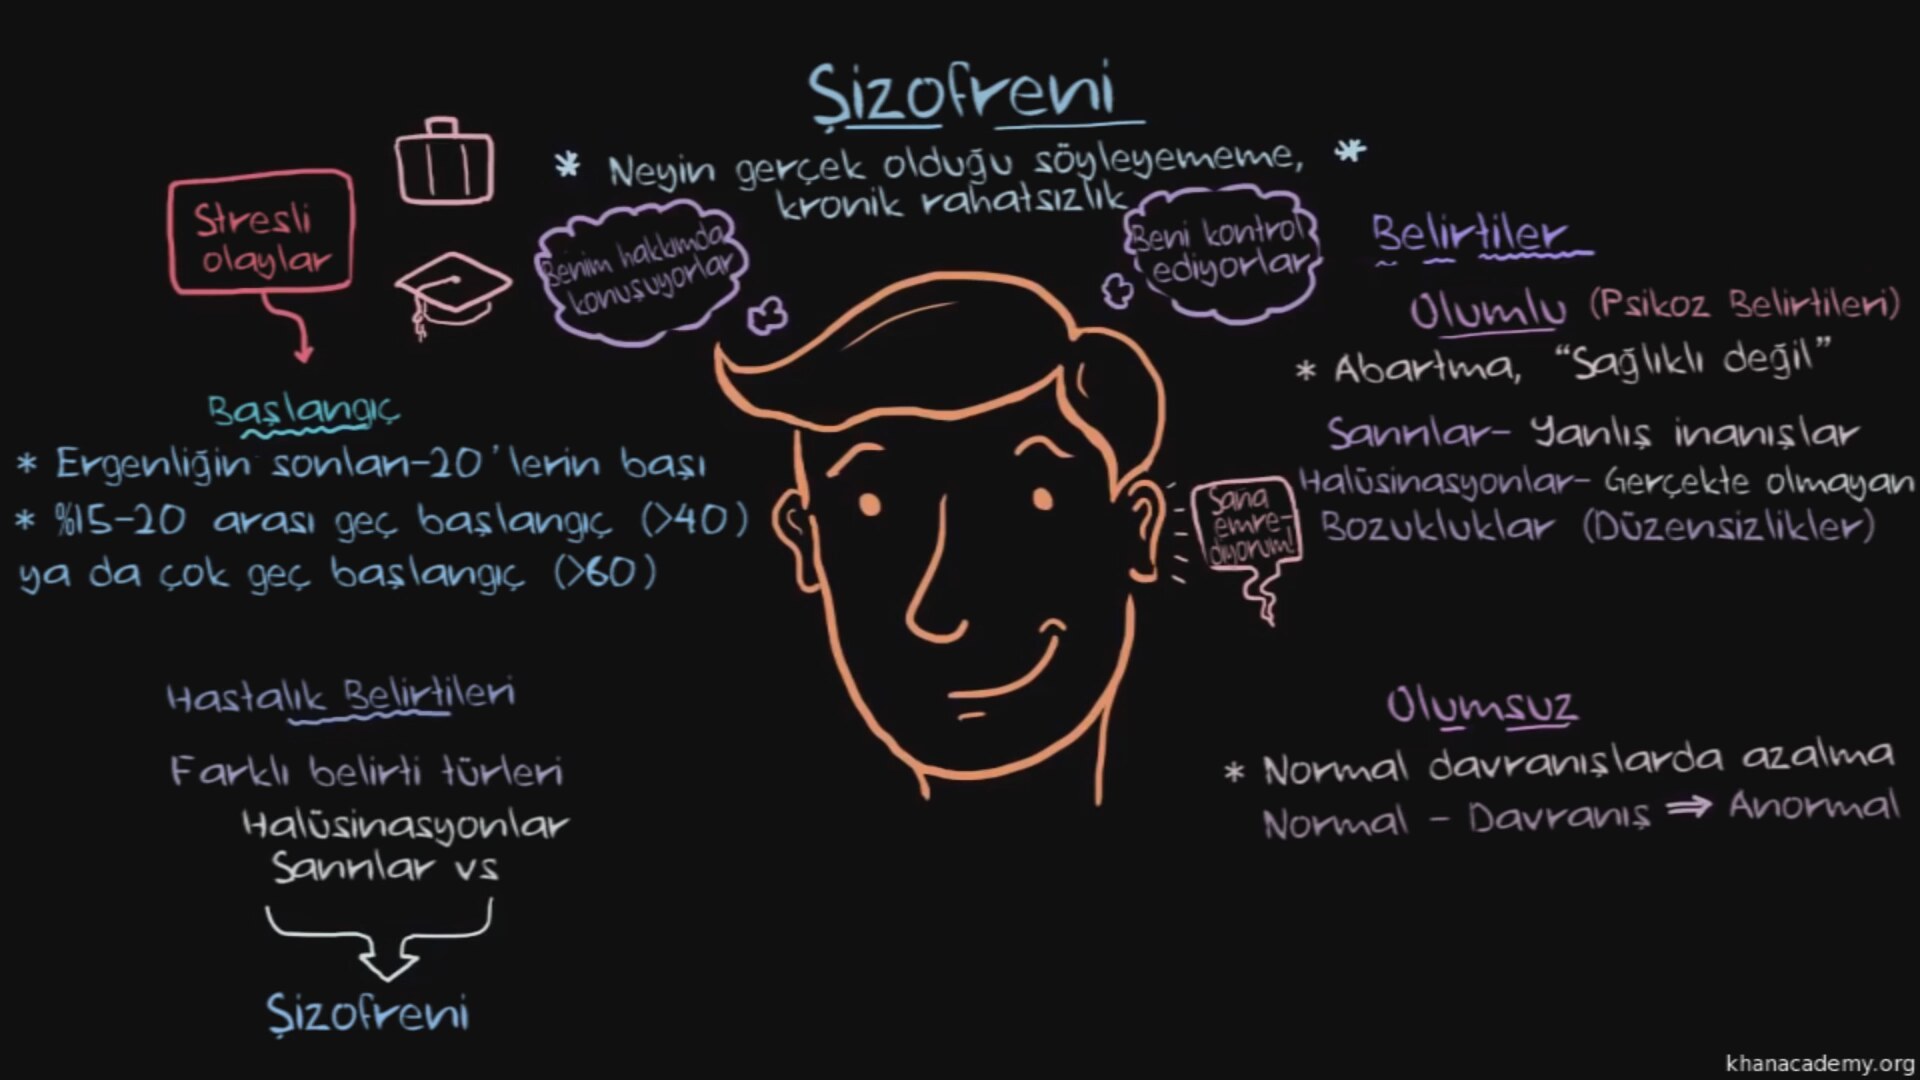 Şizofreni
* Neyin gerçek olduğu söyleyememe, *
kronik rahatsızlık
Stresli
olaylar
Benim hakkımda
konuşuyorlar
Beni kontrol
ediyorlar
Başlangıç
* Ergenliğin sonları-20'lerin başı
* %15-20 arası geç başlangıç (>40)
ya da çok geç başlangıç (>60)
Hastalık Belirtileri
Farklı belirti türleri
Halüsinasyonlar
Sanrılar vs
Şizofreni
Belirtiler
Olumlu (Psikoz Belirtileri)
* Abartma, "Sağlıklı değil"
Sanrılar- Yanlış inanışlar
Halüsinasyonlar- Gerçekte olmayan
Bozukluklar (Düzensizlikler)
Sana
emre-
diyorum!
Olumsuz
* Normal davranışlarda azalma
Normal - Davranış ⇒ Anormal
khanacademy.org